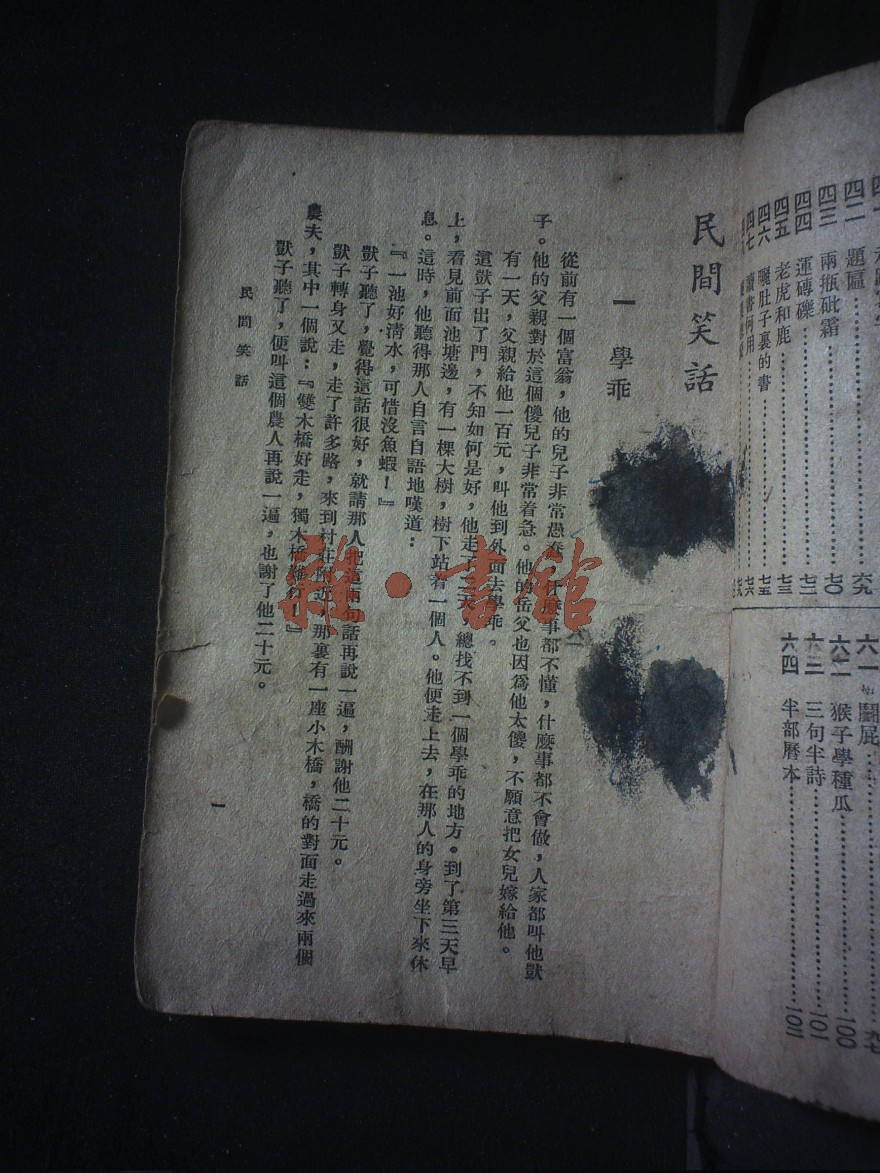 民間笑話
一 學乖
從前有一個富翁，他的兒子非常愚蠢，什麼事都不懂，什麼事都不會做，人家都叫他獃
子。他的父親對於這個傻兒子非常着急。他的岳父也因爲他太傻，不願意把女兒嫁給他。
有一天，父親給他一百元，叫他到外面去學乖。
這獃子出了門，不知如何是好，他走了天總找不到一個學乖的地方。到了第三天早
上，看見前面池塘邊，有一棵大樹，樹下站着一個人。他便走上去，在那人的身旁坐下來休
息。這時，他聽得那人自言自語地嘆道：
『一池好清水，可惜沒魚蝦！』
獃子聽了，覺得這話很好，就請那人把這兩句話再說一遍，酬謝他二十元。
獃子轉身又走，走了許多路，來到村莊附近，那裏有一座小木橋，橋的對面走過來兩個
農夫，其中一個說：『雙木橋好走，獨木橋難行！』
獃子聽了，便叫這個農人再說一遍，也謝了他二十元。
民間笑話
一
四二 題匾 七〇
四三 兩瓶砒霜
四四 運磚礫 七二
四五 老虎和鹿 七三
四六 曬肚子裏的書 七五
四七 讀書何用 七六
六一 鬭屁 九七
六二 猴子學種瓜 一〇〇
六三 三句半詩 一〇一
六四 半部曆本 一〇二
雜·書館